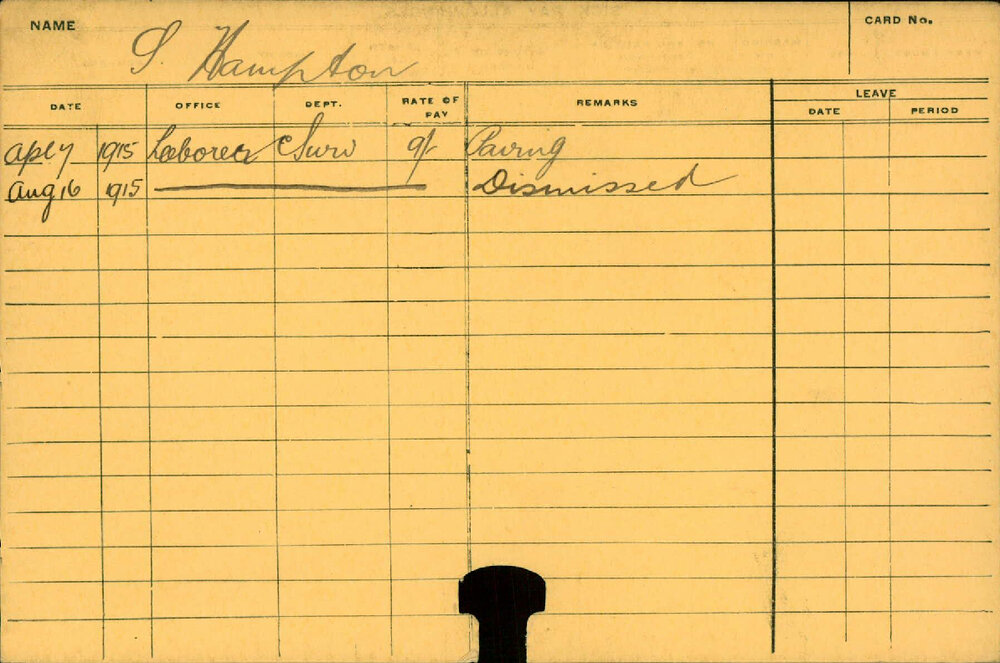 NAME S. Hampton CARD No.
DATE OFFICE DEPT. RATE OF PAY REMARKS LEAVE
DATE PERIOD
Apl 7 1915 Laborer CSurv 9/ Paving
Aug 16 1915 Dismissed